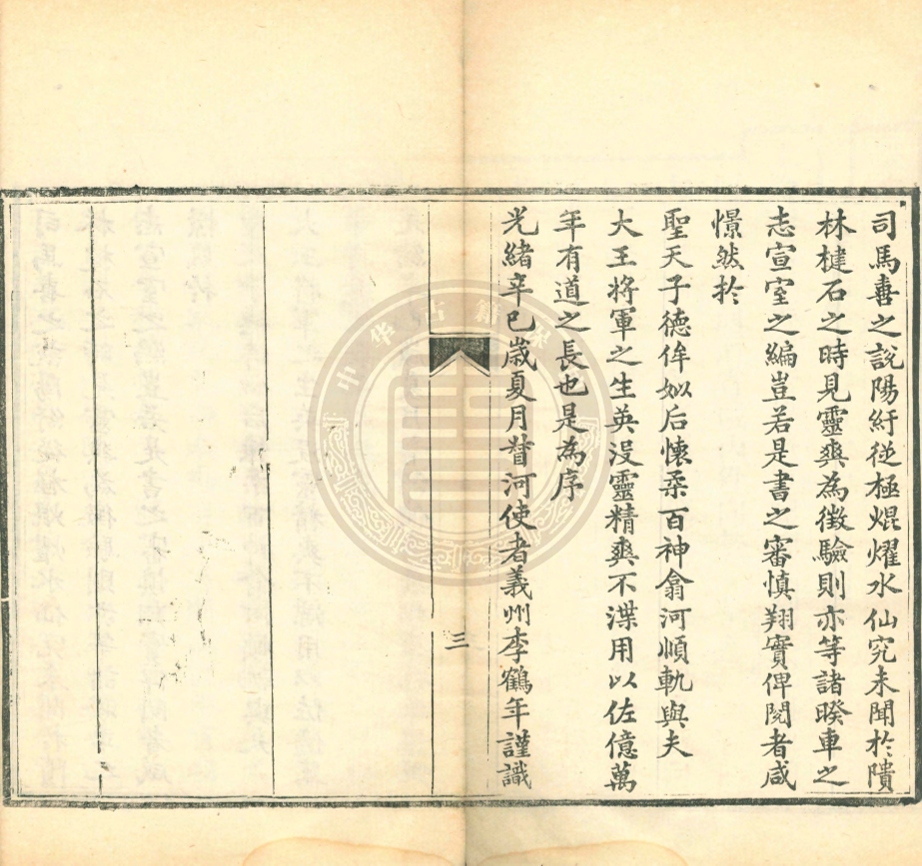 司馬熹之說陽紆從極焜燿水仙究未聞於隤
林楗石之時見靈爽為徵驗則亦等諸暌車之
志宣室之編豈若是書之審慎翔實俾閱者咸
憬然於
聖天子德侔姒后懷柔百神翕河順軌與夫
大王將軍之生英沒靈精爽不渫用以佐億萬
年有道之長也是為序
光緒辛巳嵗夏月督河使者義州李鶴年謹識
三